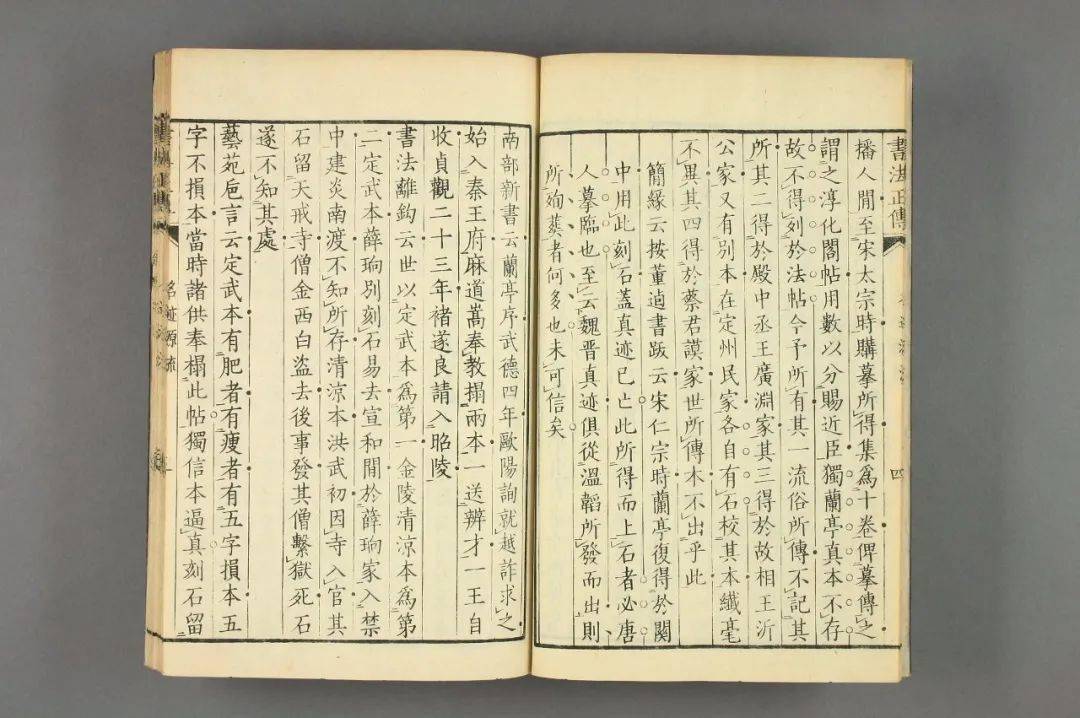 書法正傳
四
播人間至宋太宗時購摹所得集爲十卷俾摹傳之
謂之淳化閣帖用數以分賜近臣獨蘭亭真本不存
故不得列於法帖今予所有其一流俗所傳不記其
所其二得於殿中丞王廣淵家其三得於故相王沂
公家又有別本在定州民家各自有石校其本纖毫
不異其四得於蔡君謨家世所傳木不出乎此
簡緣云按董逌書跋云宋仁宗時蘭亭復得於關
中用此刻石蓋真迹已亡此所得而上石者必唐
人摹臨也至云魏晉真迹俱從溫韜所發而出則
所殉葬者何多也未可信矣
南部新書云蘭亭序武德四年歐陽詢就越詐求之
始入秦王府麻道嵩奉教搨兩本一送辨才一王自
收貞觀二十三年褚遂良請入昭陵
書法離鈎云世以定武本爲第一金陵清涼本爲第
二定武本薛珦別刻石易去宣和間於薛珦家入禁
中建炎南渡不知所存清涼本洪武初因寺入官其
石留天戒寺僧金西白盜去後事發其僧繫獄死石
遂不知其處
藝苑巵言云定武本有肥者有瘦者有五字損本五
字不損本當時諸供奉搨此帖獨信本逼真刻石留
名迹源流